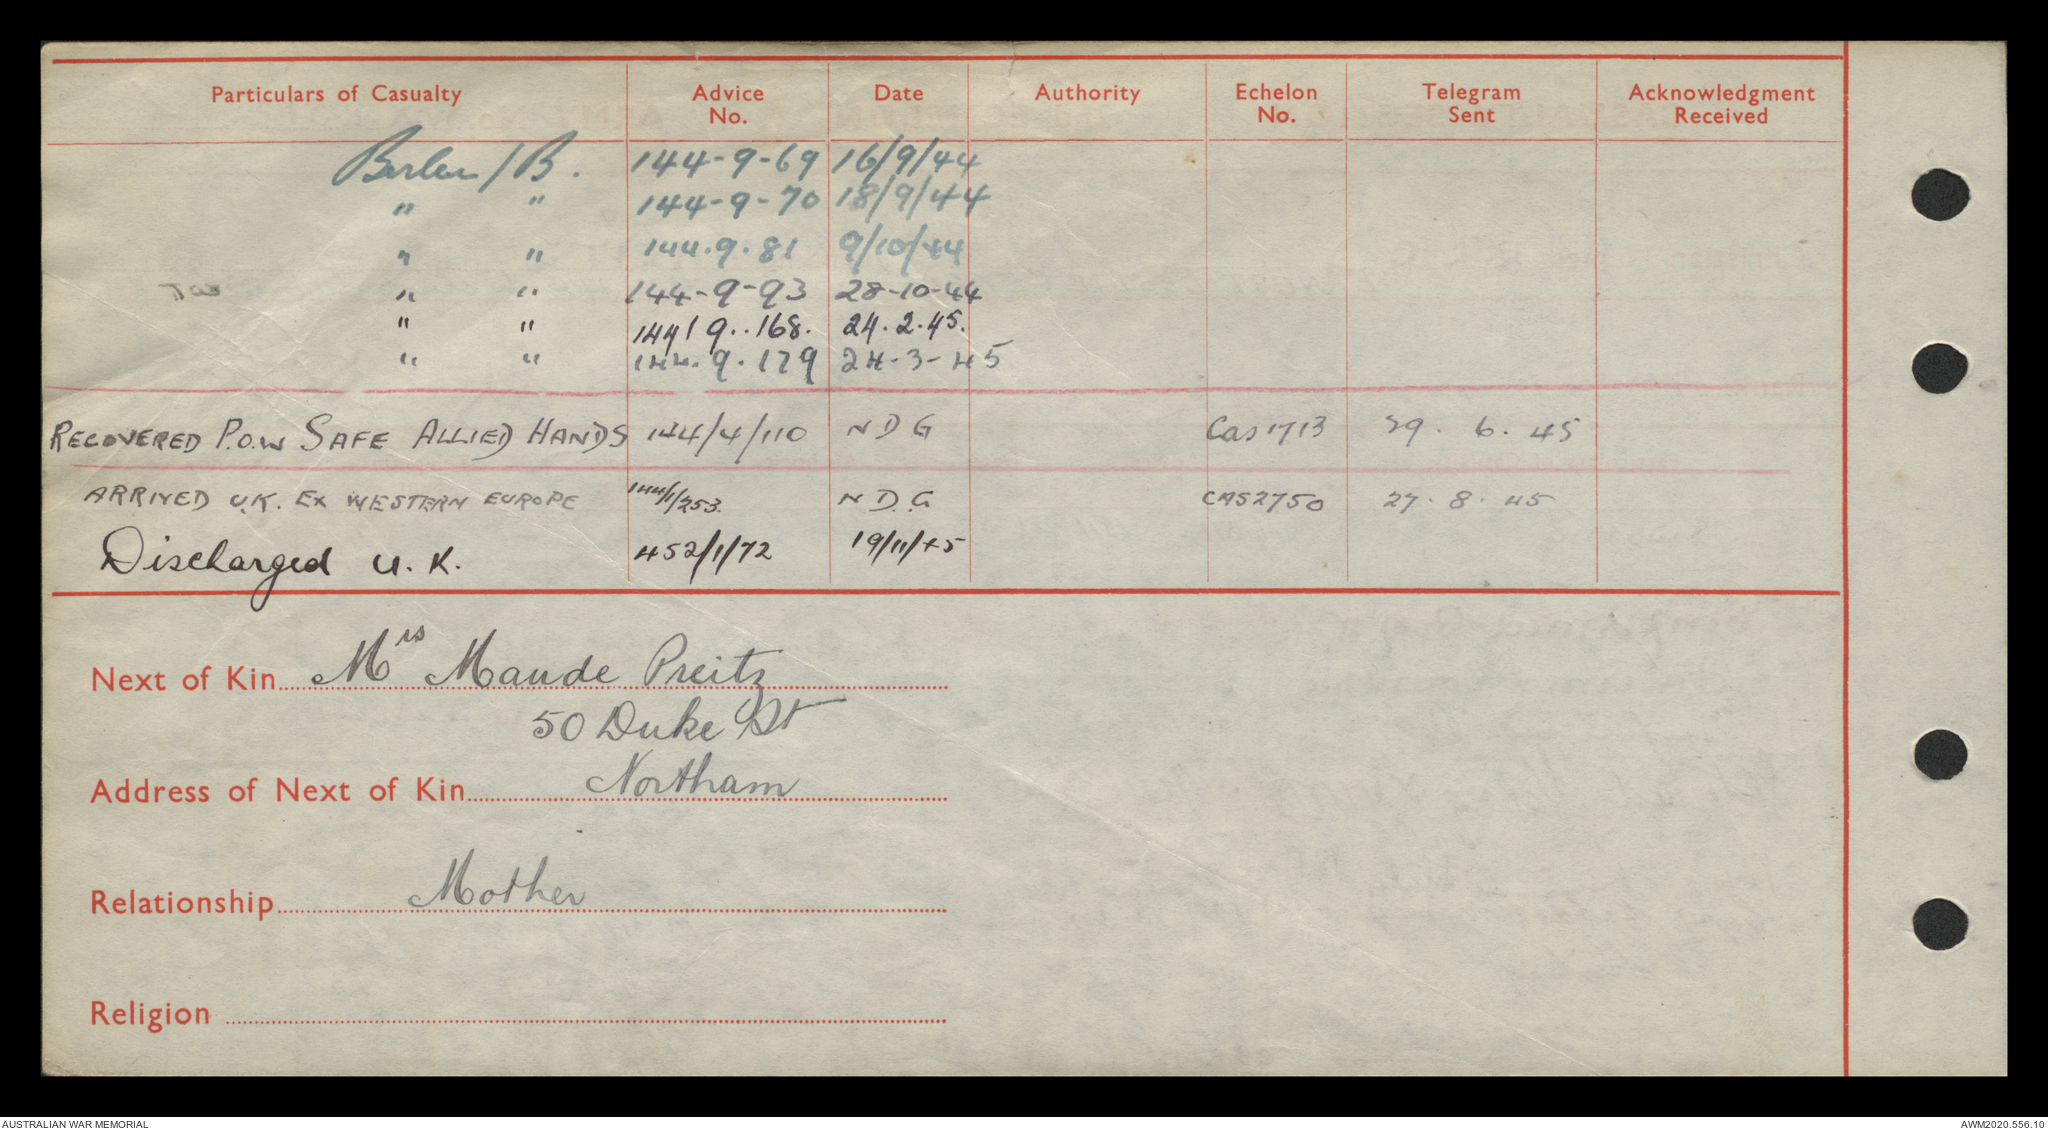 Particulars of Casualty Advice No. Date Authority Echelon No. Telegram Sent Acknowledgment Received
Berlin/B. 144-9-69 16/9/44
" " 144-9-70 18/9/44
" " 144.9.81 9/10/44
" " 144-9-93 28-10-44
" " 144/9..168. 24.2.45.
" " 144.9.179 24-3-45
RECOVERED P.O.W SAFE ALLIED HANDS 144/4/110 N D G Cas 1713 29. 6. 45
ARRIVED U.K. EX WESTERN EUROPE 144/1/253. N D.G CAS2750 27.8.45
Discharged U.K. 452/1/72 19/11/45
Next of Kin Mrs Maude Preitz
50 Duke St
Address of Next of Kin Northam
Relationship Mother
Religion
AUSTRALIAN WAR MEMORIAL AWM2020.556.10